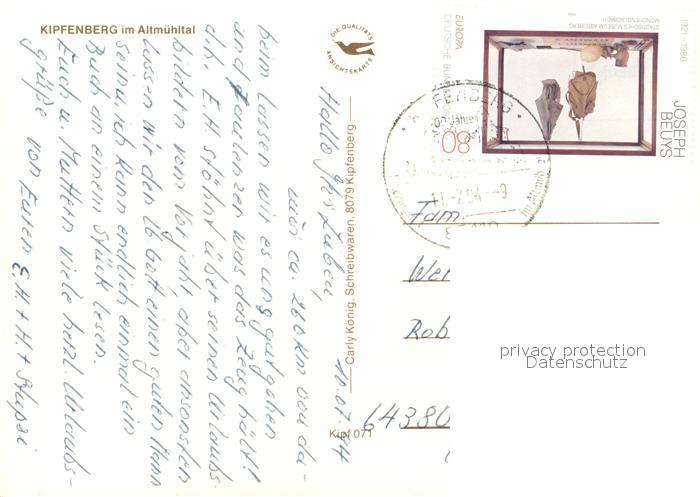 KIPFENBERG im Altmühltal
DIE QUALITÄTS
ANSICHTSKARTE
10.07.94
Hallo Ihr Lieben,
nur ca. 260 km von da-
heim lassen wir es uns gutgehen
und faulenzen was das Zeug hält!
Dch. E.H. stöhnt über seinen Urlaubs-
bildern vom Vorjahr aber ansonsten
lassen wir den lb Gott einen guten Mann
sein u. ich kann endlich einmal ein
Buch an einem Stück lesen.
Euch u. Muttern viele herzl. Urlaubs-
grüße von Euren E.H. + H. + Stupsi
Carly König, Schreibwaren, 8079 Kipfenberg
Kipf 071
EUROPA
DEUTSCHE BUNDESPOST
80
STÄDTISCHES MUSEUM ABTEIBERG
MÖNCHENGLADBACH
1921-1986
JOSEPH
BEUYS
Jahre
im Altmühl
Fam.
Wer
Rob
64380
privacy protection
Datenschutz